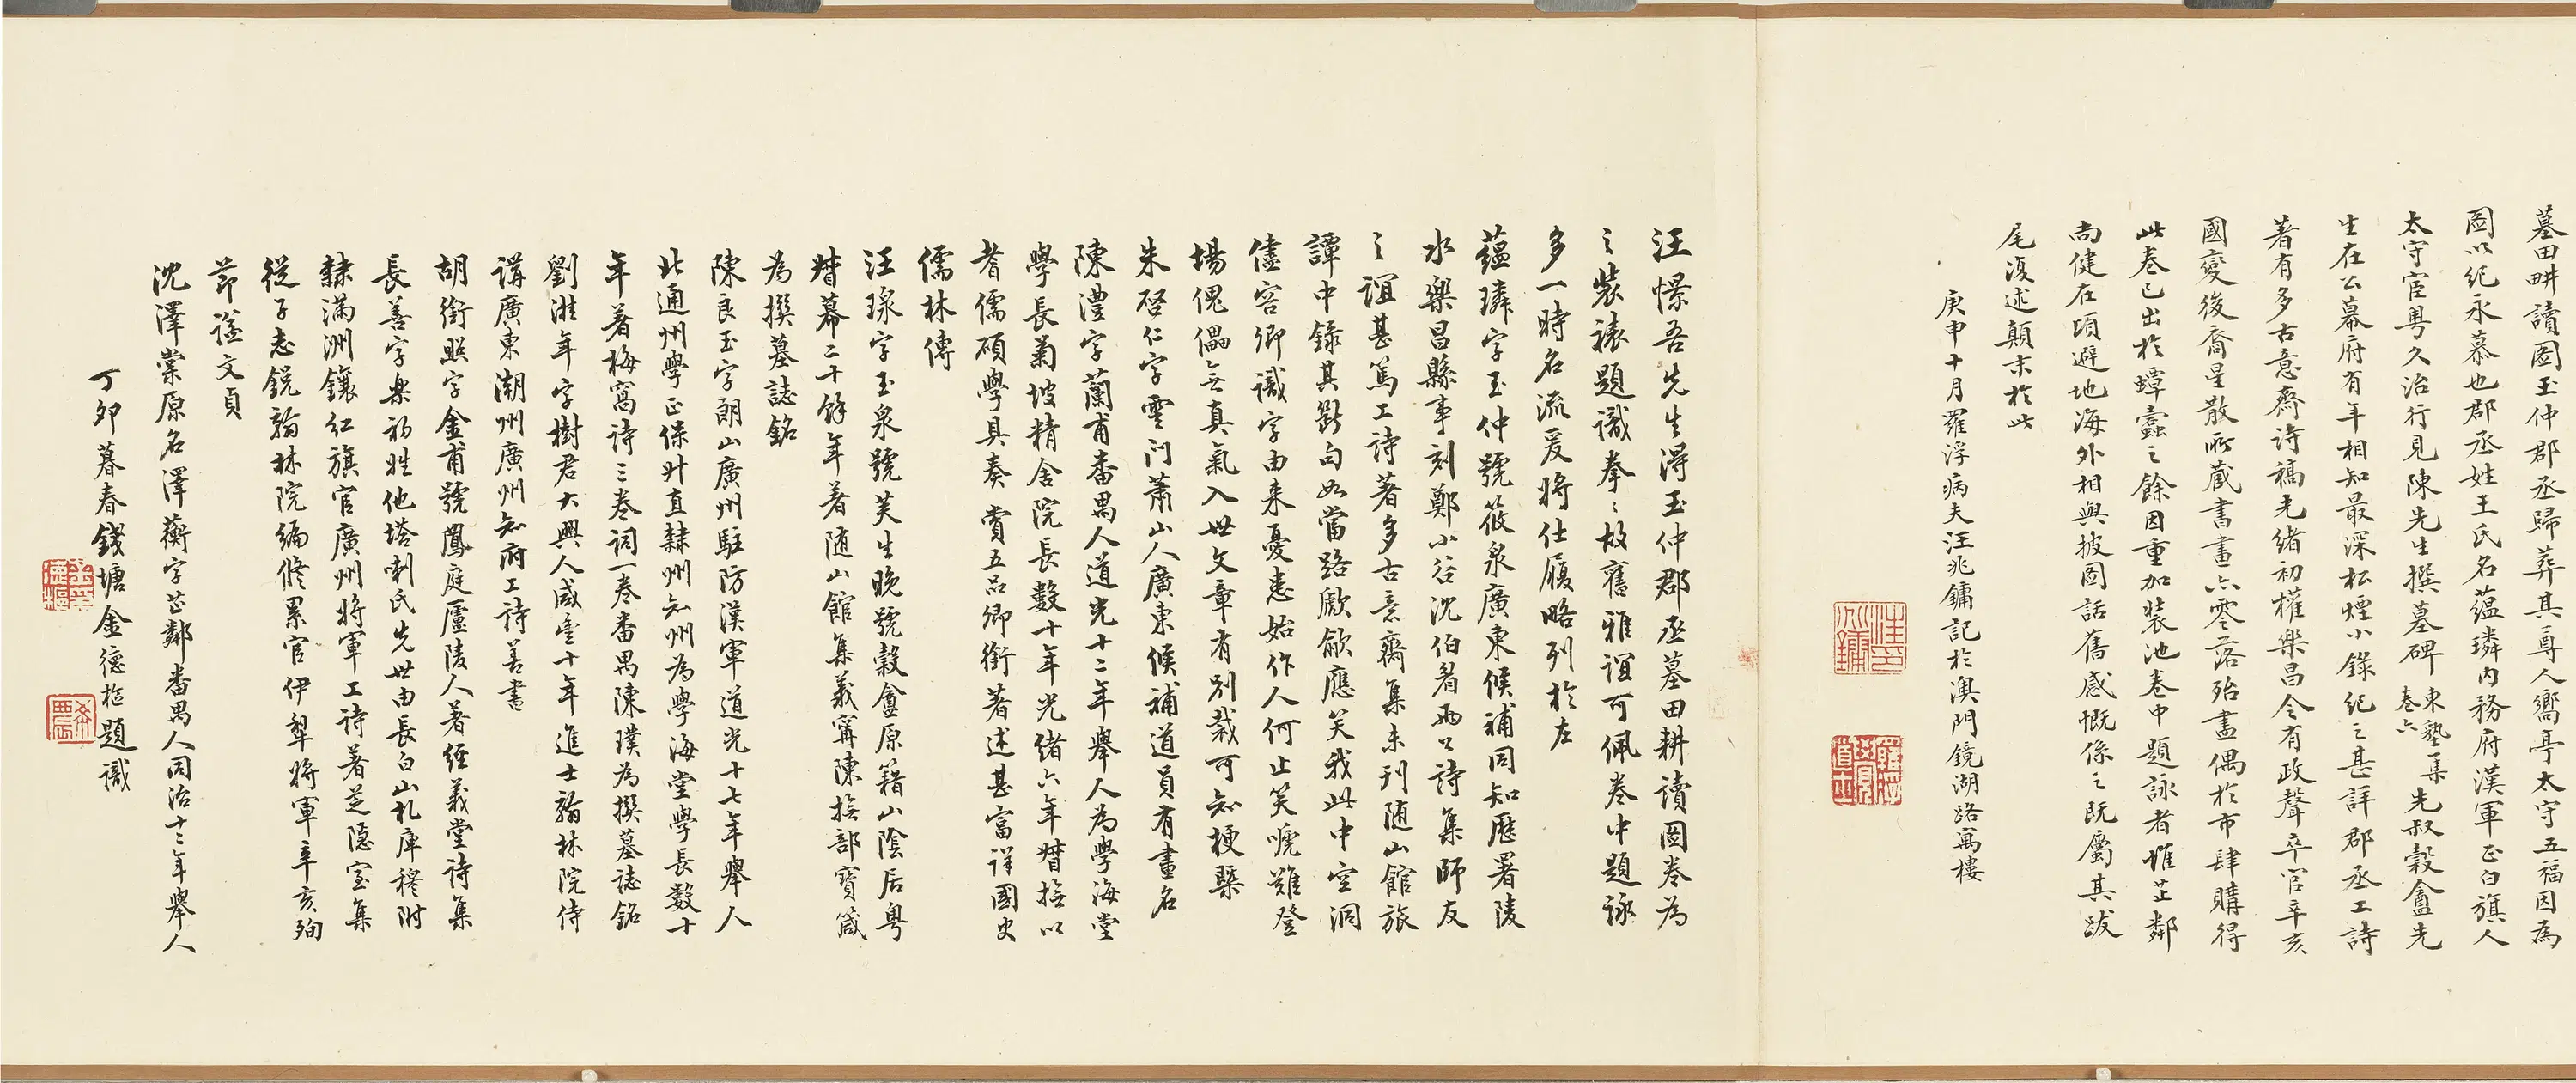 墓田畊讀圖玉仲郡丞歸葬其尊人嚮亭太守五福因爲
圖以紀永慕也郡丞姓王氏名蘊璘內務府漢軍正白旗人
太守宦粵久治行見陳先生撰墓碑東塾集卷六先叔穀盦先
生在公幕府有年相知最深松煙小錄紀之甚詳郡丞工詩
著有多古意齋詩稿光緒初權樂昌令有政聲卒官辛亥
國變後喬星散所藏書畫亦零落殆盡偶於市肆購得
此卷已出於蟫蠹之餘因重加裝池卷中題詠者惟芷鄰
尚健在頃避地海外相與披圖話舊感慨係之既屬其跋
尾復述顛末於此
庚申十月羅浮病夫汪兆鏞記於澳門鏡湖路寓樓
汪憬吾先生得玉仲郡丞墓田耕讀圖卷為
之裝裱題識拳〻故舊雅誼可佩卷中題詠
多一時名流爰將仕履略列於左
蘊璘字玉仲號筱泉廣東候補同知歷署陵
水樂昌縣事刻鄭小谷沈伯眉兩公詩集師友
之誼甚篤工詩著多古意齋集未刊隨山館旅
譚中錄其斷句如當路歔欷應笑我此中空洞
儘容卿識字由來憂患始作人何止笑嚬難登
場傀儡無真氣入世文章有別裁可知梗槩
朱啓仁字雲門蕭山人廣東候補道員有畫名
陳澧字蘭甫番禺人道光十二年舉人為學海堂
學長菊坡精舍院長數十年光緒六年督撫以
耆儒碩學具奏賞五品卿銜著述甚富詳國史
儒林傳
汪瑔字玉泉號芙生晚號穀盦原籍山陰居粵
督幕二十餘年著隨山館集義寧陳撫部寶箴
為撰墓誌銘
陳良玉字朗山廣州駐防漢軍道光十七年舉人
北通州學正保升直隸州知州為學海堂學長數十
年著梅窩詩三卷詞一卷番禺陳璞為撰墓誌銘
劉湘年字樹君大興人咸豐十年進士翰林院侍
講廣東潮州廣州知府工詩善書
胡衔照字金甫號鳳庭廬陵人著經義堂詩集
長善字樂初姓他塔喇氏先世由長白山札庫穆附
隸滿洲鑲紅旗官廣州將軍工詩著芝隱室集
從子志銳翰林院編修累官伊犂將軍辛亥殉
節謚文貞
沈澤棠原名澤蘅字芷鄰番禺人同治十二年舉人
丁卯暮春錢塘金德樞題識